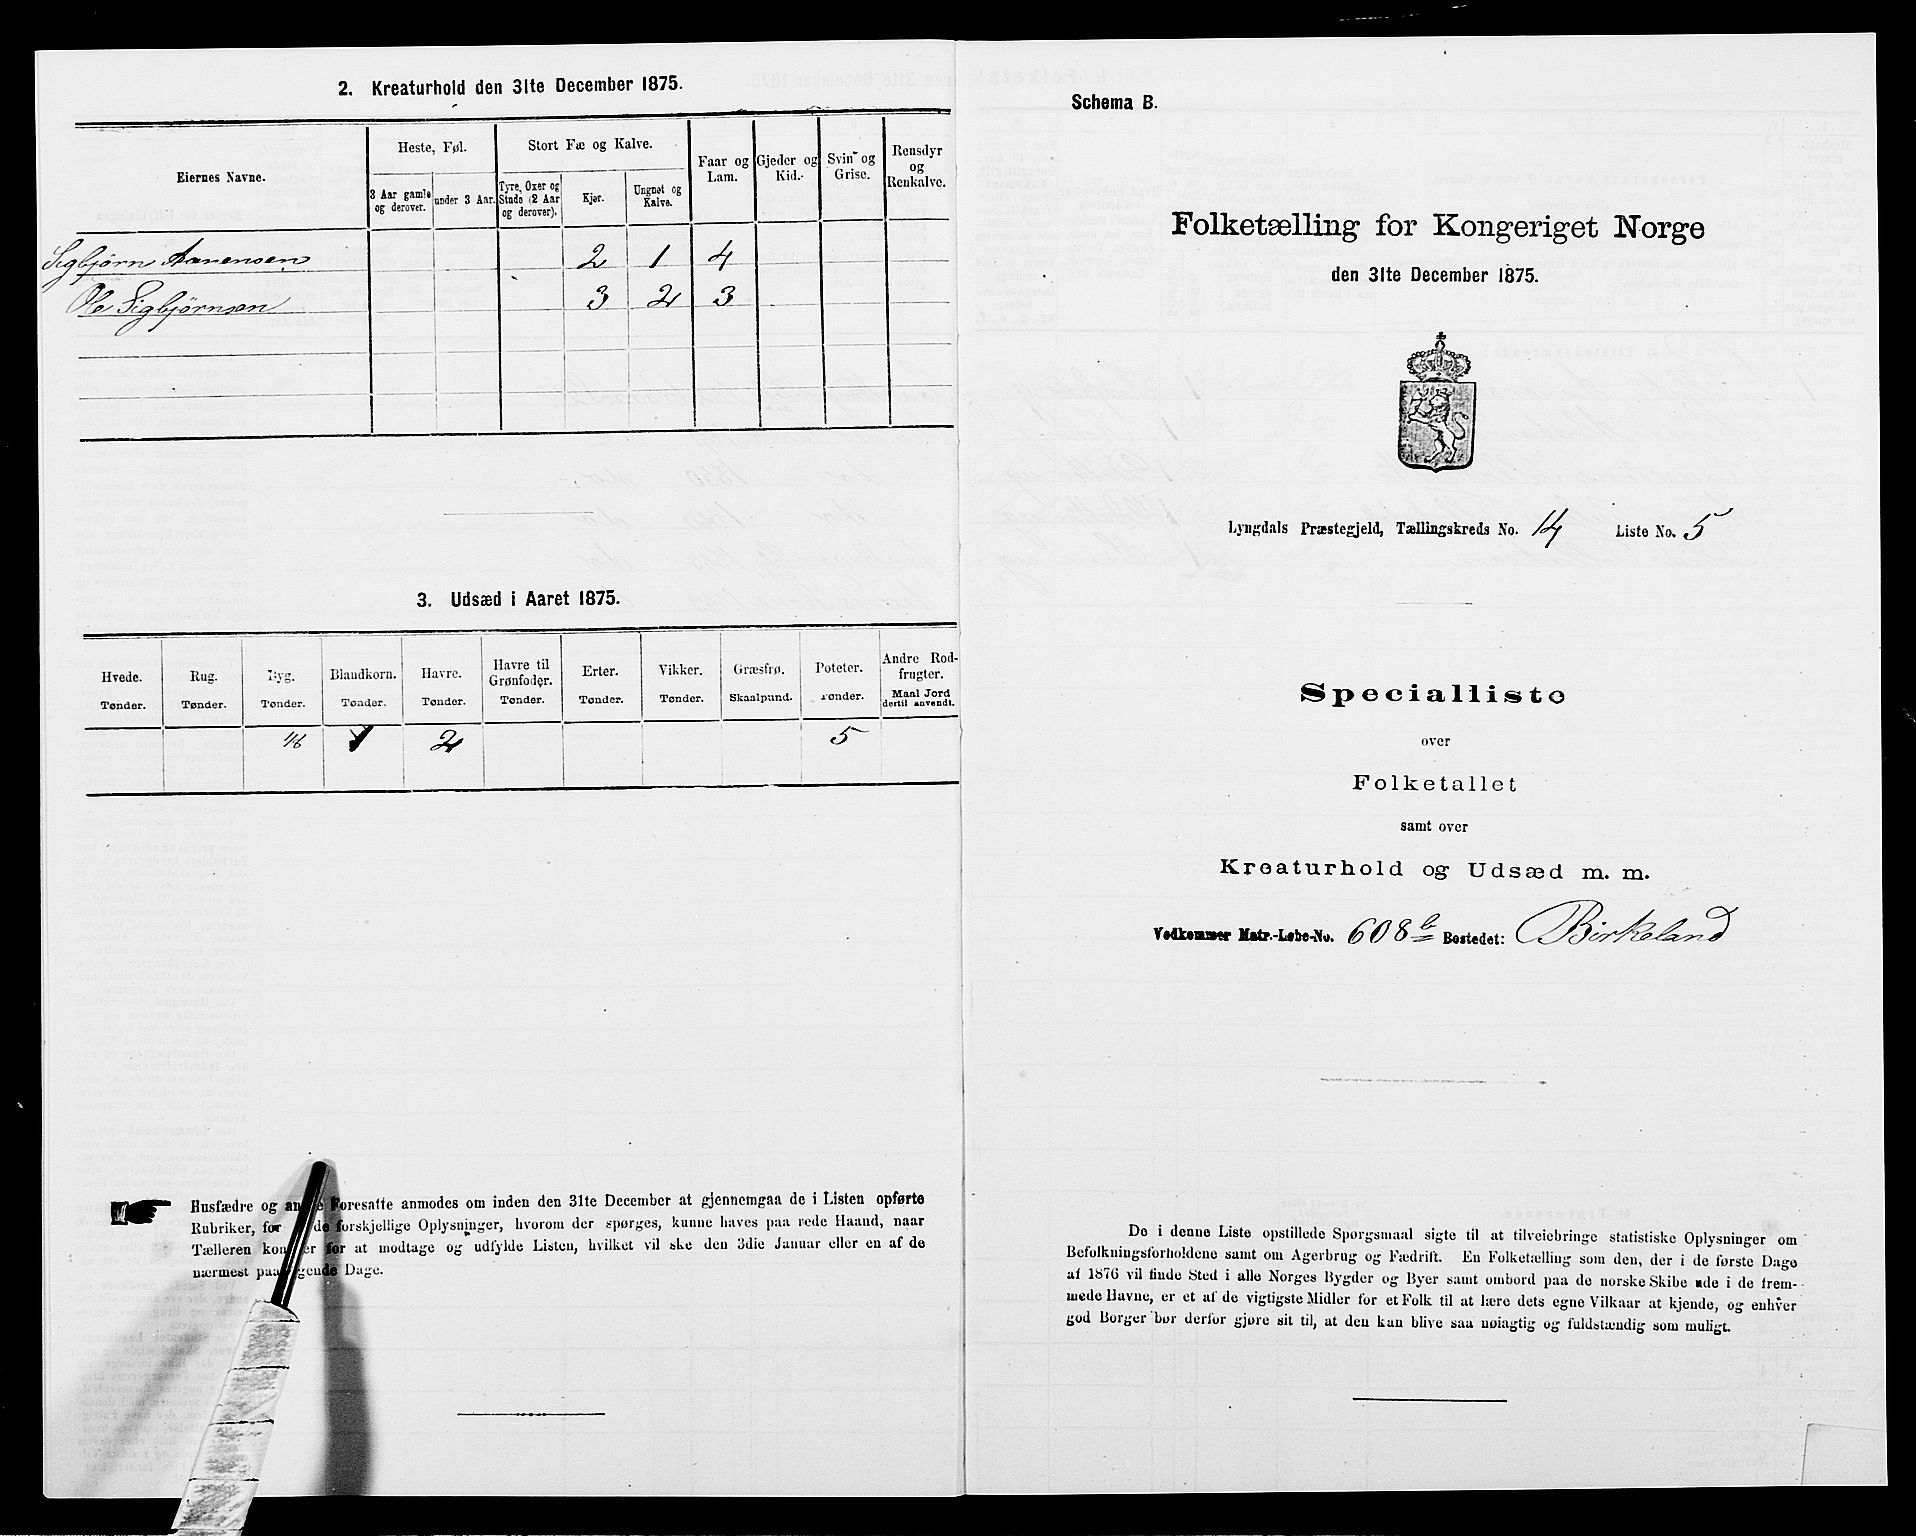 2. Kreaturhold den 31te December 1875.
Eiernes Navne.
Heste, Føl.
3 Aar gamle og derover.
under 3 Aar.
Stort Fæ og Kalve.
Tyre, Oxer og Stude (2 Aar og derover).
Kjør.
Ungnøt og Kalve.
Faar og Lam.
Gjeder og Kid.
Svin og Grise.
Rensdyr og Renkalve.
Sigbjørn Aanensen 2 1 4
Ole Sigbjørnsen 3 2 3
3. Udsæd i Aaret 1875.
Hvede. Rug. Byg. Blandkorn. Havre. Havre til Grønfoder. Erter. Vikker. Græsfrø. Poteter. Andre Rodfrugter.
Tønder. Tønder. Tønder. Tønder. Tønder. Tønder. Tønder. Tønder. Skaalpund. Tønder. Maal Jord dertil anvendt.
2 5
Husfædre og andre Foresatte anmodes om inden den 31te December at gjennemgaa de i Listen opførte
Rubriker, for de forskjellige Oplysninger, hvorom der spørges, kunne haves paa rede Haand, naar
Tælleren kommer for at modtage og udfylde Listen, hvilket vil ske den 3die Januar eller en af de
nærmest paafølgende Dage.
Schema B.
Folketælling for Kongeriget Norge
den 31te December 1875.
Lyngdals Præstegjeld, Tællingskreds No. 14 Liste No. 5
Specialliste
over
Folketallet
samt over
Kreaturhold og Udsæd m. m.
Vedkommer Matr.-Løbe-No. 608 b Bostedet: Birkeland
De i denne Liste opstillede Spørgsmaal sigte til at tilveiebringe statistiske Oplysninger om
Befolkningsforholdene samt om Agerbrug og Fædrift. En Folketælling som den, der i de første Dage
af 1876 vil finde Sted i alle Norges Bygder og Byer samt ombord paa de norske Skibe ude i de frem-
mede Havne, er et af de vigtigste Midler for et Folk til at lære dets egne Vilkaar at kjende, og enhver
god Borger bør derfor gjøre sit til, at den kan blive saa nøiagtig og fuldstændig som muligt.